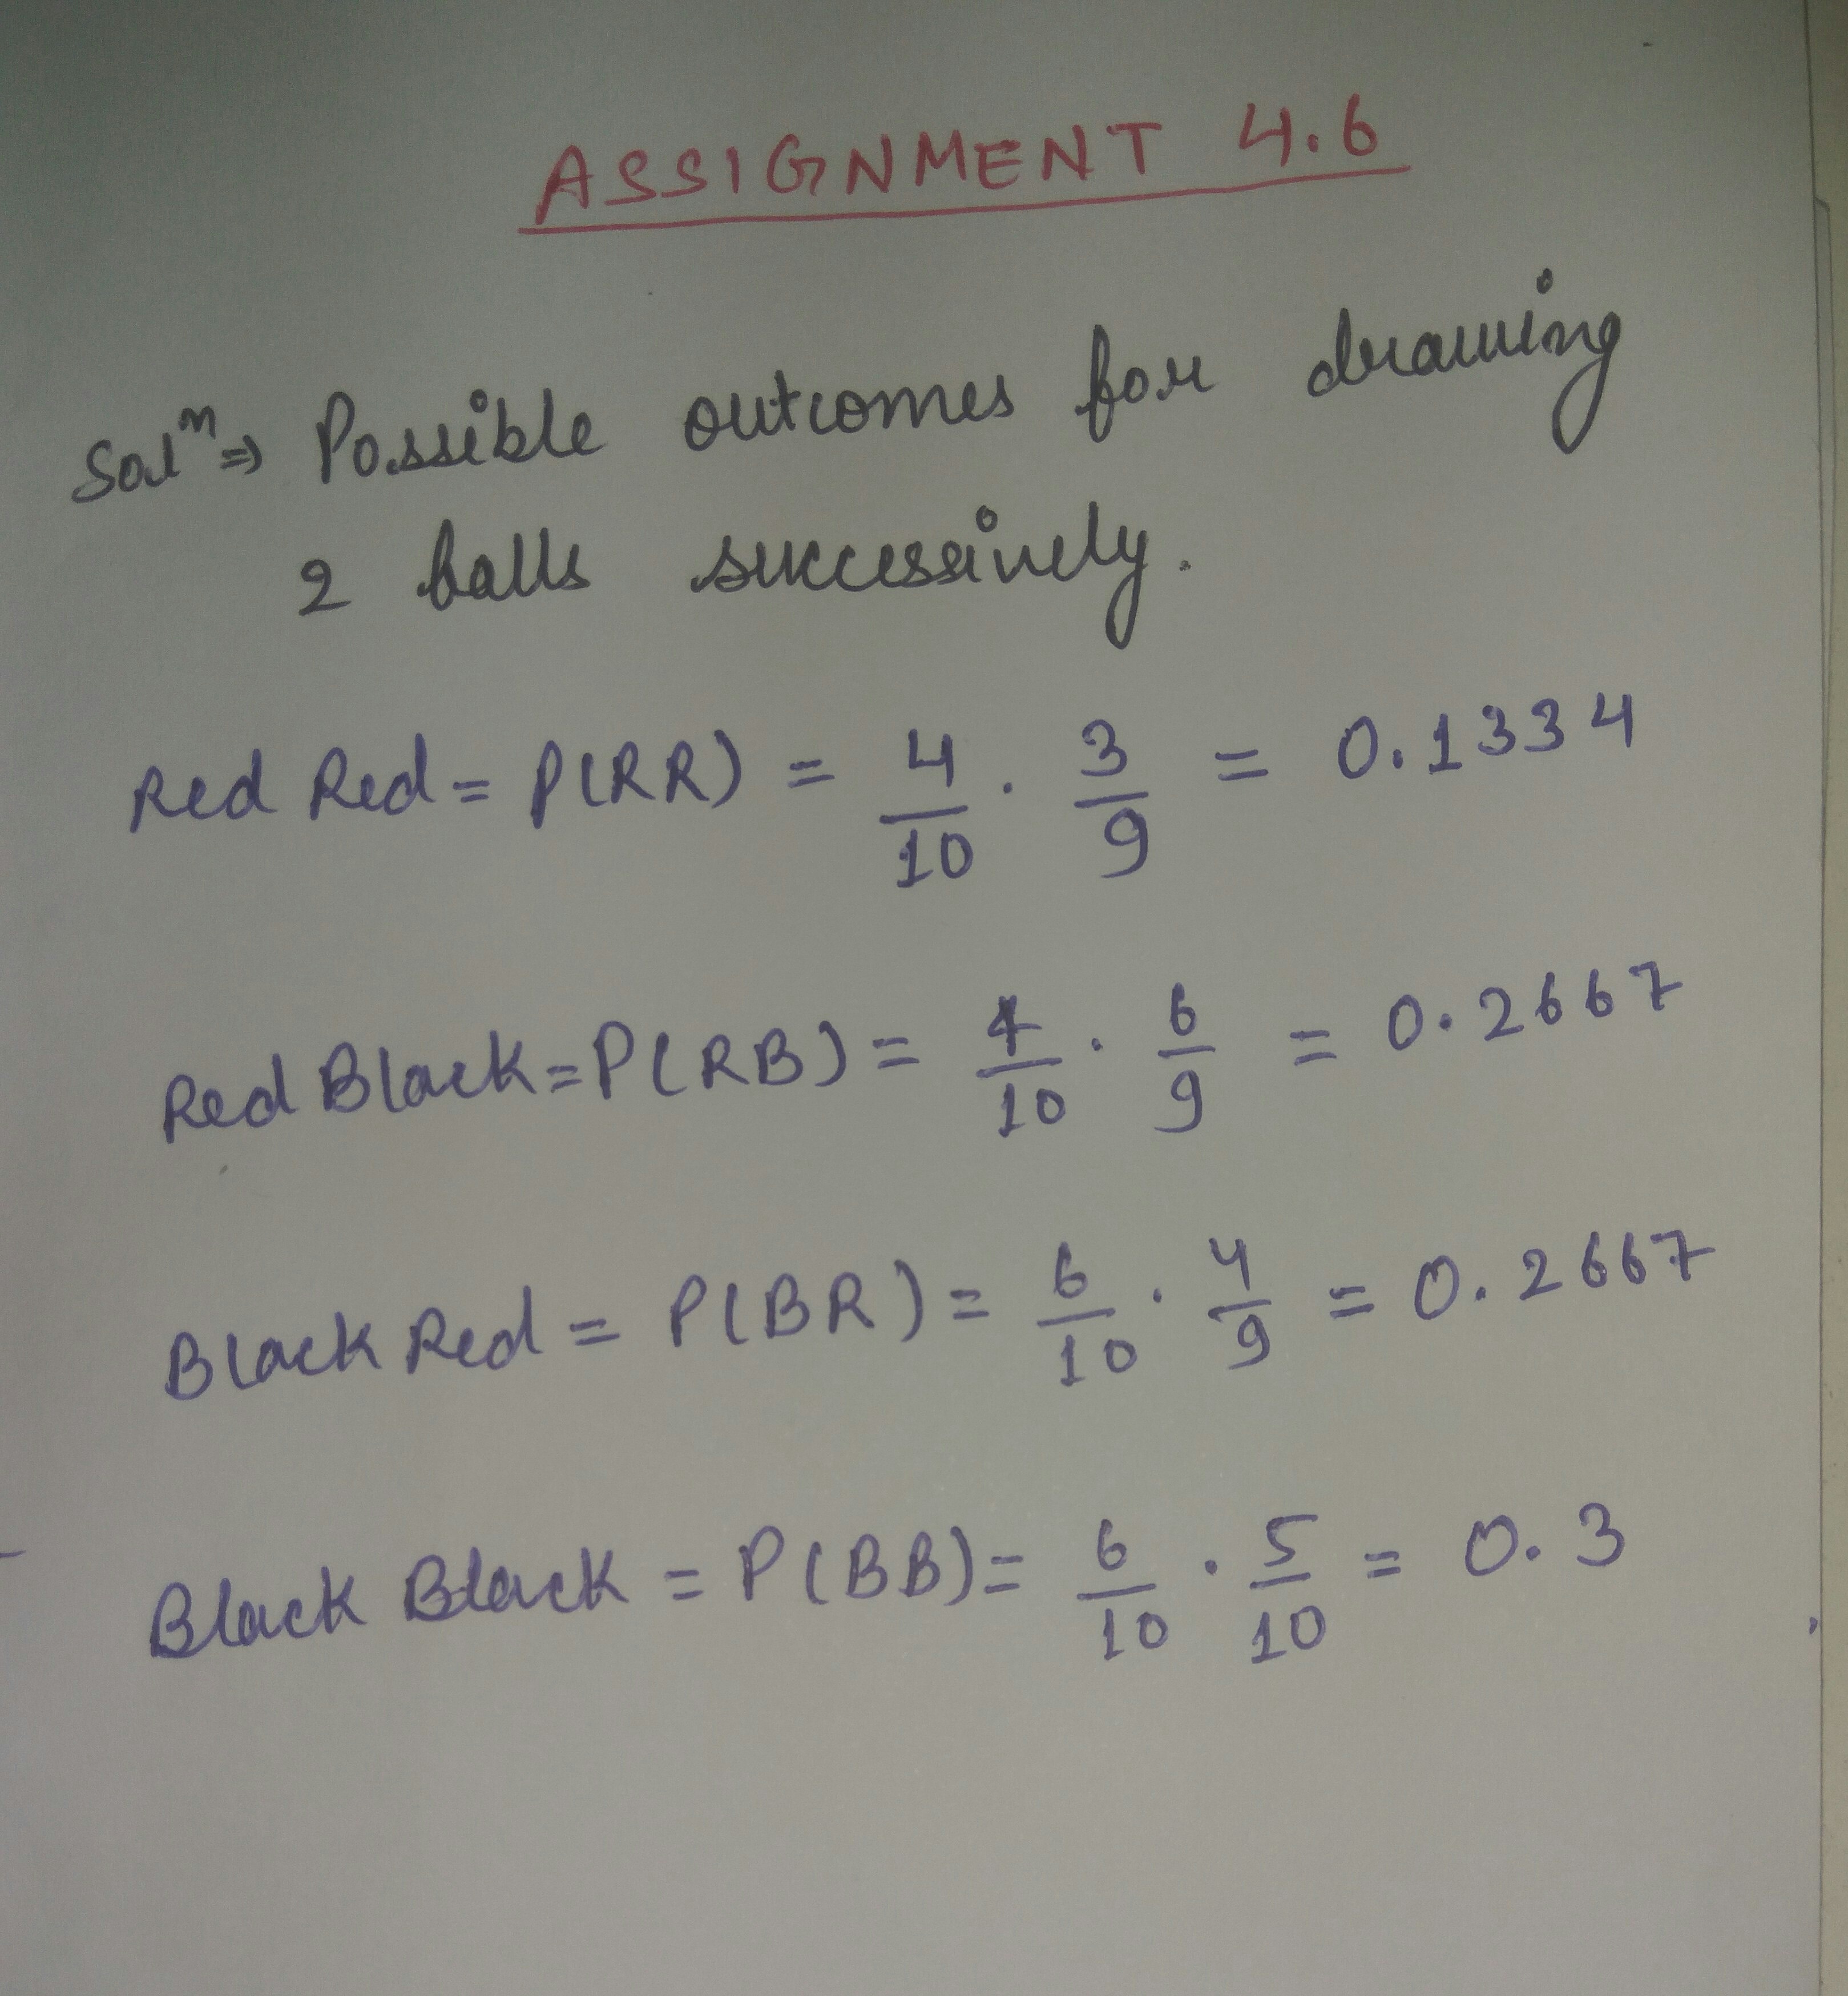 ASSIGNMENT 4.6
Solⁿ⇒ Possible outcomes for drawing
2 balls successively.
Red Red = P(RR) = 4/10 . 3/9 = 0.1334
Red Black = P(RB) = 4/10 . 6/9 = 0.2667
Black Red = P(BR) = 6/10 . 4/9 = 0.2667
Black Black = P(BB) = 6/10 . 5/10 = 0.3